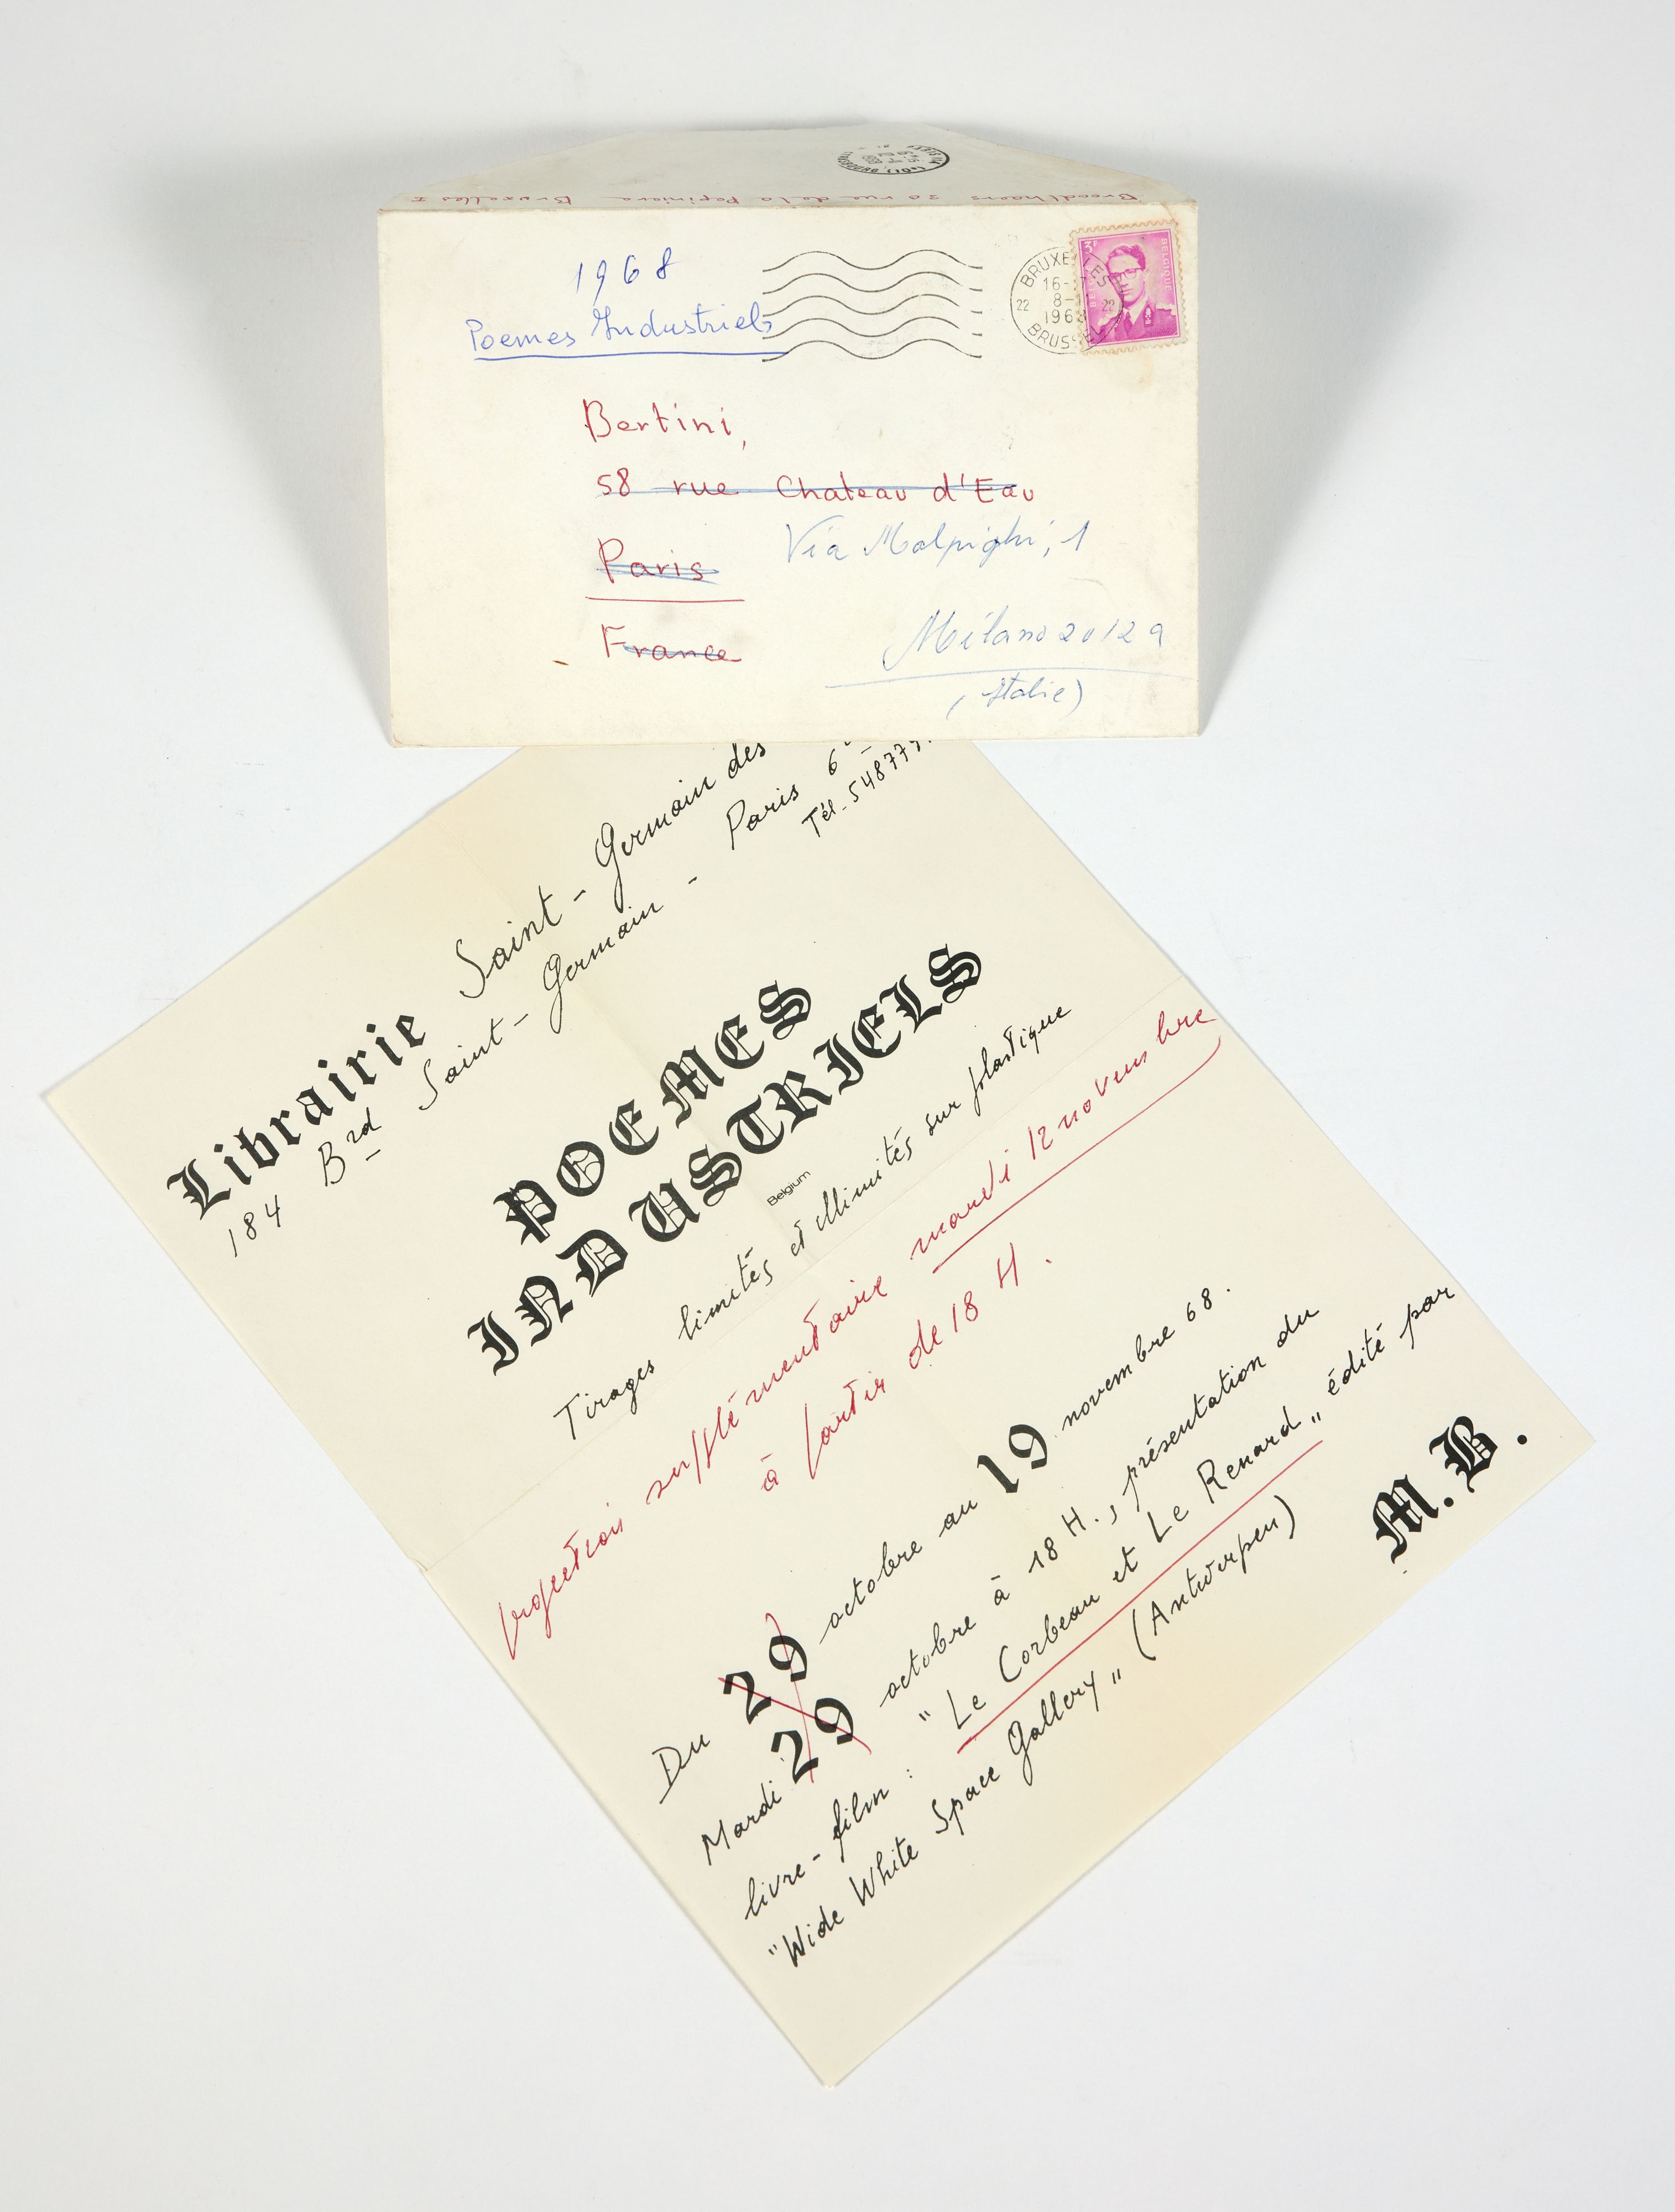 Broodthaers 30 rue de la Pepiniere Bruxelles 1
1968
Poemes Industriels
BRUXELLES
16-
8-11
1968
22 22
BRUSSEL
3F
BELGIQUE
Bertini,
58 rue Chateau d'Eau
Paris
France
Via Malpighi, 1
Milano 20129
(Italie)
Librairie Saint-Germain des
184 Brd Saint-Germain - Paris 6
Tél. 54877
POEMES
INDUSTRIELS
Belgium
Tirages limités et illimités sur plastique
projection supplémentaire mardi 12 novembre
à partir de 18 H.
Du 29 octobre au 19 novembre 68.
Mardi 29 octobre à 18 H., présentation du
livre-film : "Le Corbeau et Le Renard„ édité par
"Wide White Space Gallery„ (Antwerpen)
M.B.